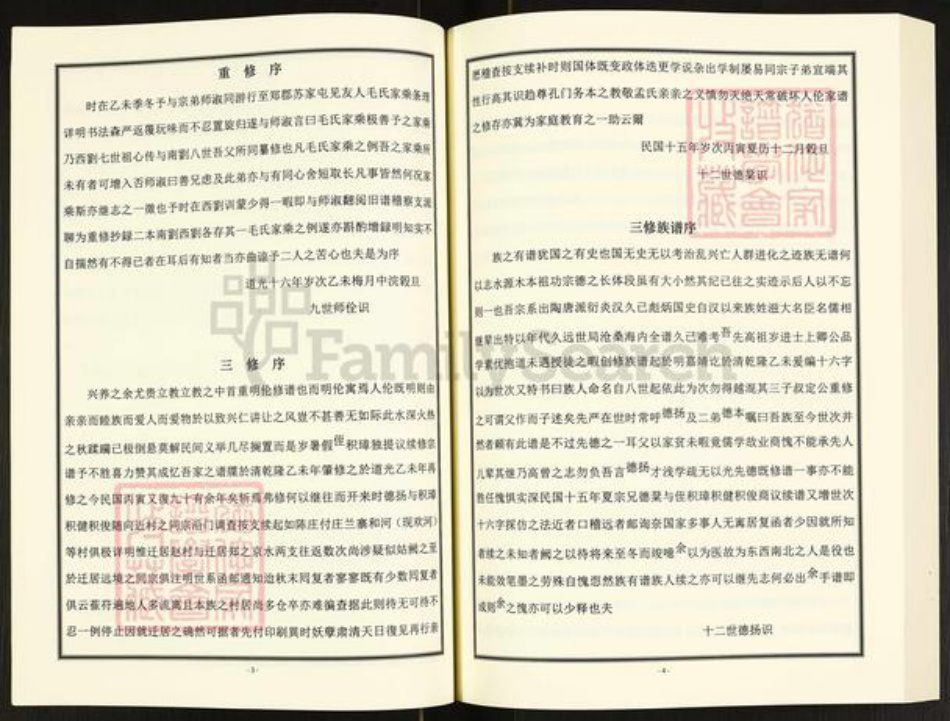 重修序
时在乙未季冬予与宗弟师淑同游行至郑郡苏家屯见友人毛氏家乘条理
详明书法森严返覆玩味而不忍置旋归遂与师淑言曰毛氏家乘极善予之家乘
乃西劉七世祖心传与南劉八世吾父所同纂修也凡毛氏家乘之例吾之家乘所
未有者可增入否师淑曰善兄虑及此弟亦与有同心舍短取长凡事皆然何况家
乘斯亦继志之一徵也予时在西劉训蒙少得一暇即与师淑翻阅旧谱稽察支派
聊为重修抄録二本南劉西劉各存其一毛氏家乘之例遂亦斟酌增録明知实不
自揣然有不得已者在耳后有知者当亦曲谅予二人之苦心也夫是为序
道光十六年岁次乙未梅月中浣榖旦
九世师佺识
三修序
兴养之余尤贵立教立教之中首重明伦修谱也而明伦寓焉人伦既明则由
亲亲而睦族而爱人而爱物於以致兴仁讲让之风豈不甚善无如际此水深火热
之秋蹂躏已极倒悬莫解民间义举几尽搁置而是岁暑假侄积璋独提议续修宗
谱予不胜喜力赞其成忆吾家之谱牒於清乾隆乙未年肇修之於道光乙未年再
修之今民国丙寅又復九十有余年矣斩焉弗修何以继往而开来时德扬与积璋
积健积俊随向近村之同宗沿门调查按支续起如陈庄付庄兰寨和河(现欢河)
等村俱极详明惟迁居赵村与迁居郑之京水两支往返数次尚涉疑似姑阙之至
於迁居远境之同宗俱注明世系函邮通知迨秋末同复者寥寥既有少数同复者
俱云萑苻遍地人多流离且本族之村居尚多仓卒亦难徧查据此则待无可待不
忍一例停止因就迁居之确然可据者先付印刷異时妖孽肃清天日復见再行亲
-3-
愿稽查按支续补时则国体既变政体迭更学说杂出学制屡易同宗子弟宜端其
性行高其识趋尊孔门务本之教敬孟氏亲亲之义慎勿灭绝天常破坏人伦家谱
之修存亦冀为家庭教育之一助云爾
民国十五年岁次丙寅夏历十二月榖旦
十二世德杲识
三修族谱序
族之有谱犹国之有史也国无史无以考治乱兴亡人群进化之迹族无谱何
以志水源木本祖功宗德之长体段虽有大小然其纪已往之实迹示后人以不忘
则一也吾宗系出陶唐派衍炎汉久已彪炳国史自汉以来族姓滋大名臣名儒相
继辈出特以年代久远世局沧桑海内全谱久己难考吾先高祖岁进士上卿公品
学素优抱道未遇授徒之暇创修族谱起於明嘉靖讫於清乾隆乙未爰编十六字
以为世次又特书曰族人命名自八世起依此为次勿得越混其三子叔定公重修
之可谓父作而子述矣先严在世时常呼德扬及二弟德本嘱曰吾族至今世次井
然者赖有此谱是不过先德之一耳父以家贫未暇竟儒学故业商愧不能承先人
儿辈其继乃高曾之志勿负吾言德扬才浅学疏无以光先德既修谱一事亦不能
胜任愧俱实深民国十五年夏宗兄德杲与侄积璋积健积俊商议续谱又增世次
十六字探仿之法近者口稽远者邮询奈国家多事人无寗居复函者少因就所知
者续之未知者阙之以待将来至冬而竣噫余以为医故为东西南北之人是役也
未能效笔墨之劳殊自愧恧然族有谱族人续之亦可以继先志何必出余手谱即
成则余之愧亦可以少释也夫
十二世德扬识
-4-
FamilySearch